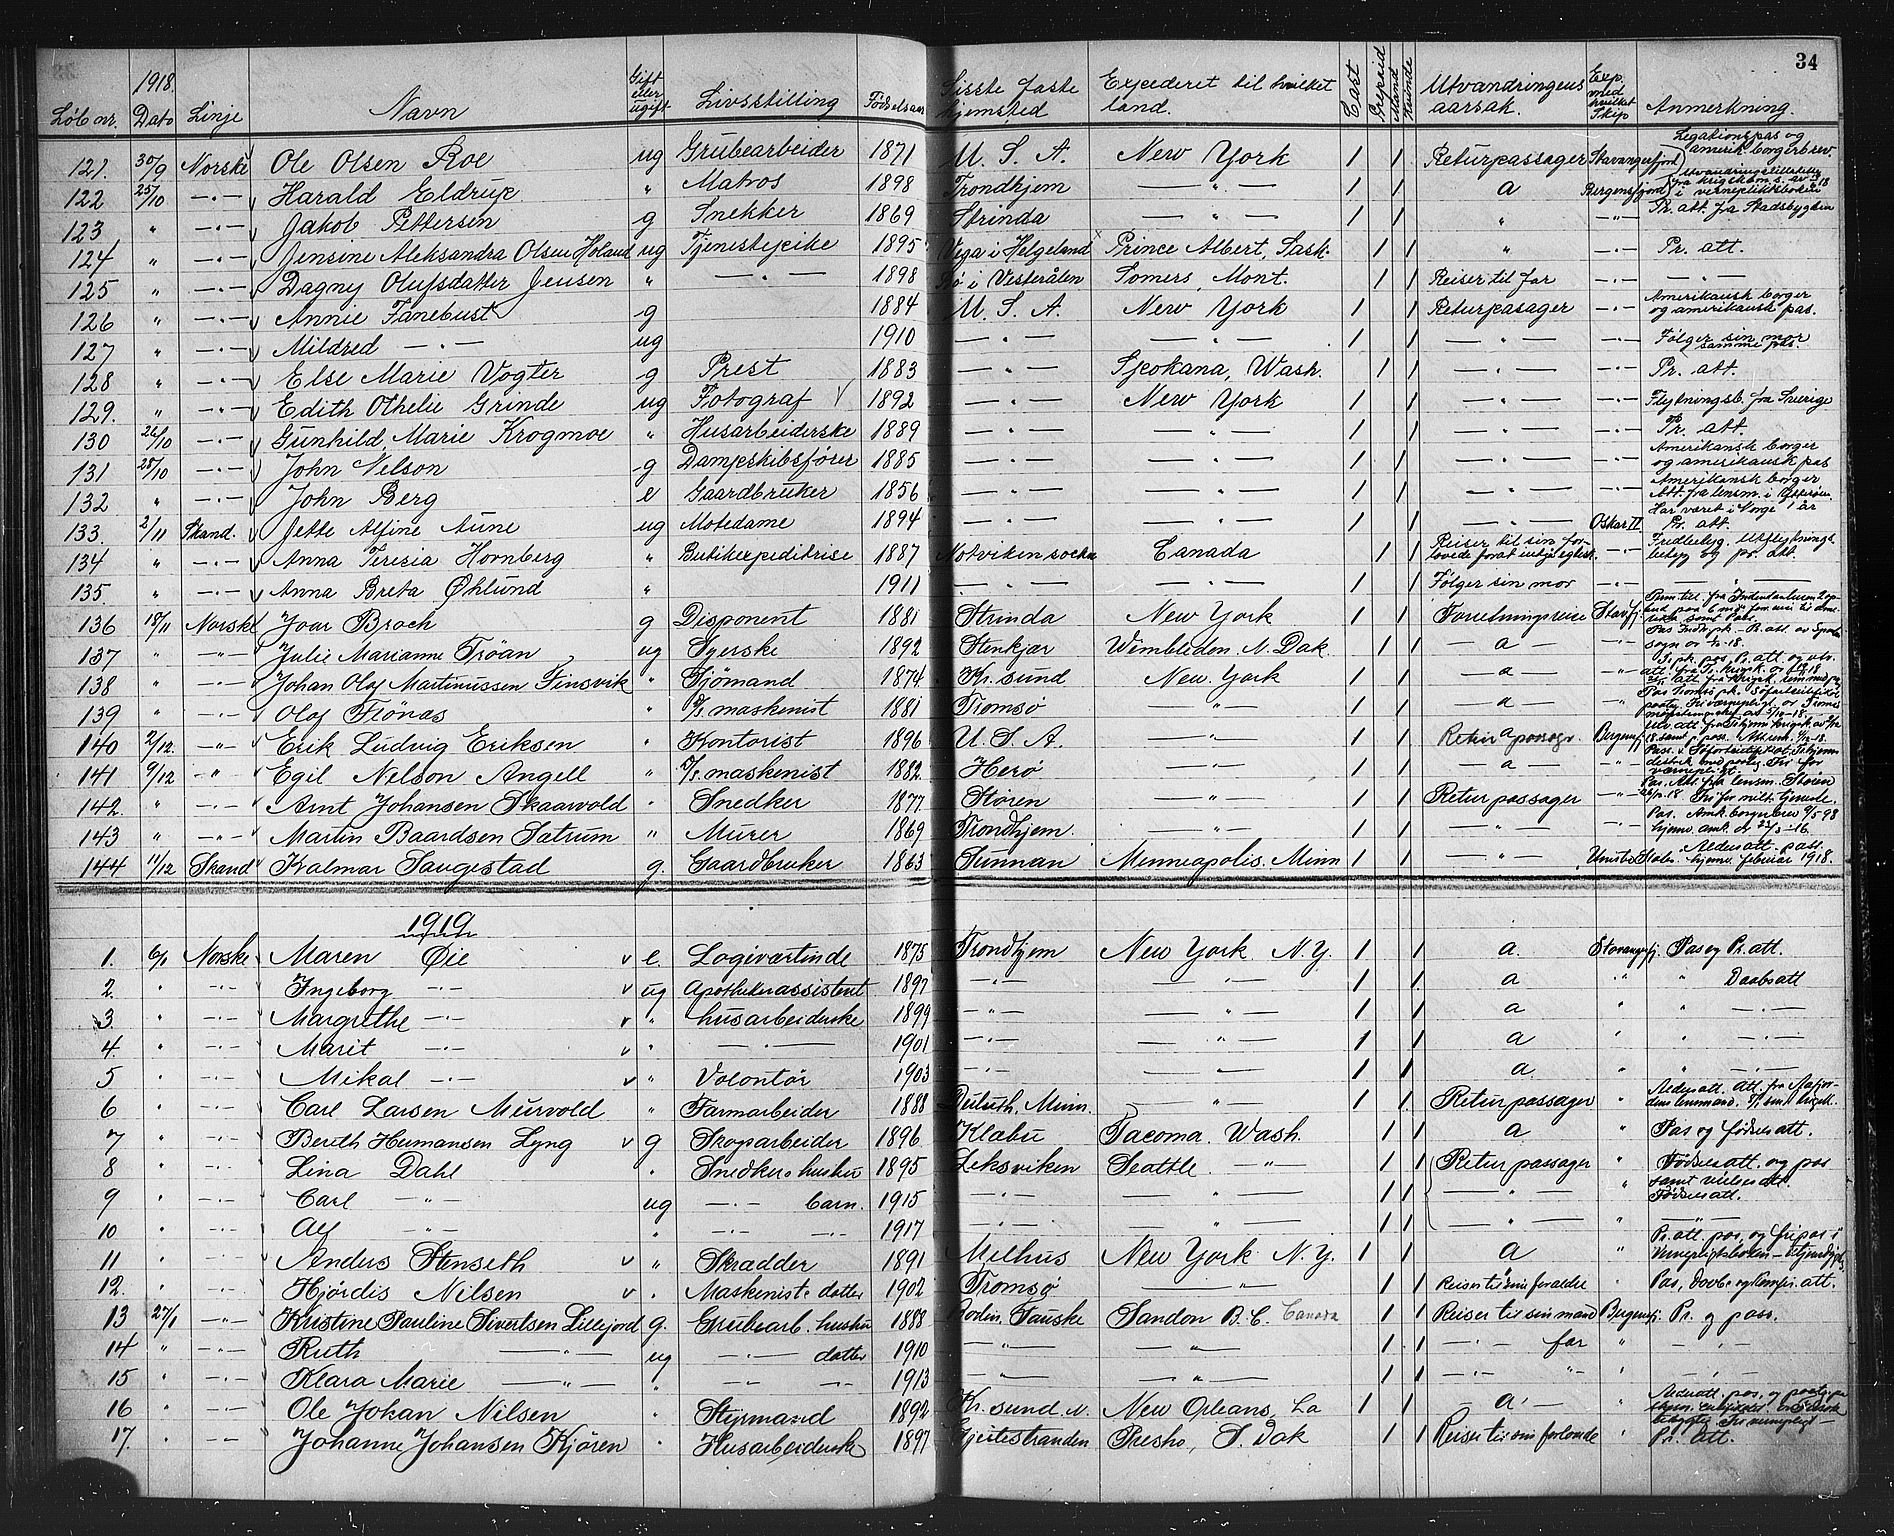 34
1918.
Løb nr. Dato Linje Navn Gift eller ugift Livsstilling Fødselsaar Sisste faste hjemsted Expederet til hvilket land. Cart Prepaid Mand Kvinde Utvandringens aarsak. Exp. med hvilket Skip Anmerkning.
121. 30/9 Norske Ole Olsen Roe ug Grubearbeider 1871 U. S. A. New York 1 1 Returpassager Stavangerfjord Legationspas og amerik. borgerbrev.
122 25/10 —〃— Harald Eldrup 〃 Matros 1898 Trondhjem —〃— 1 1 a Bergensfjord
123 〃 —〃— Jakob Pettersen g Snekker 1869 Strinda —〃— 1 1 〃 —〃— Pr. att. fra Stadsbygden
124 〃 —〃— Jensine Aleksandra Olsen Høland ug Tjenestepike 1895 Vega i Helgeland Prince Albert, Sask. 1 1 〃 —〃— Pr. att.
125 〃 —〃— Dagny Olufsdatter Jensen 〃 —〃— 1898 Bø i Vesterålen Somers, Mont. 1 1 Reiser til far —〃— —〃—
126 〃 —〃— Annie Fanebust g 1884 U. S. A. New York 1 1 Returpasager —〃— Amerikansk borger og amerikansk pas.
127 〃 —〃— Mildred —〃— ug 1910 —〃— —〃— 1 1 —〃— —〃— Følger sin mor samme pas.
128 〃 —〃— Else Marie Vogter g Prest 1883 —〃— Spokana, Wash. 1 1 —〃— —〃— Pr. att.
129. 〃 —〃— Edith Othelie Grinde ug Fotograf √ 1892 —〃— New York 1 1 —〃— —〃— Flytningsb. fra Sverige
130 26/10 —〃— Gunhild Marie Krogmoe 〃 Husarbeiderske 1889 —〃— —〃— 1 1 —〃— —〃— Pr. att.
131 28/10 —〃— John Nelson g Dampskibsfører 1885 —〃— —〃— 1 1 —〃— —〃— Amerikansk borger og amerikansk pas
132 〃 —〃— John Berg e Gaardbruker 1856 —〃— —〃— 1 1 —〃— Amerikansk borger Att. fra lensm. i
133. 2/11 Skand. Jette Alfine Aune ug Motedame 1894 —〃— —〃— 1 1 —〃— Oskar II Har været i Norge 1 år Pr. att.
134 〃 —〃— Anna Teresia Hornberg 〃 Butikexpeditrise 1887 Notviken socken Canada 1 1 Reiser til sin forlovede —〃— og pr. att.
135. 〃 —〃— Anna Breta Øhlund 〃 1911 —〃— —〃— 1 1 Følger sin mor —〃— —〃—
136 18/11 Norske Joar Broch g Disponent 1881 Strinda New York 1 1 Foretningsreise Stavfj.
137 〃 —〃— Julie Marianne Trøan ug Syerske 1892 Stenkjær Wimbledon N. Dak. 1 1 — a — —〃—
138 〃 —〃— Johan Olaf Martinussen Finsvik 〃 Sjömand 1874 Kr. sund New York 1 1 — a — 〃
139 〃 —〃— Olaf Fiönas 〃 D/s. maskenist 1881 Tromsø —〃— 1 1 — a — 〃
140 2/12. —〃— Erik Ludvig Eriksen 〃 Kontorist 1896 U. S. A. —〃— 1 1 Retur passagr. Bergensfj.
141 9/12 —〃— Egil Nelson Angell 〃 D/s maskenist 1882 Herö —〃— 1 1 — a — —〃—
142. 〃 —〃— Arnt Johansen Skaarvold 〃 Snedker 1877 Støren —〃— 1 1 Returpassager —〃—
143 〃 —〃— Martin Baardsen Sætrum 〃 Murer 1869 Trondhjem. —〃— 1 1 —〃— —〃— Pas. Amk. borgerbrev 9/5-98
144 11/12 Skand Kalmar Saugestad g. Gaardbruker 1863 Sunnan Minneapolis. Minn 1 1 —〃— Aldersatt. patt. hjemv. februar 1918.
1919
1. 6/1 Norske Maren Øie v e. Logivartinde 1875 Trondhjem New York N.Y. 1 1 a. Stavangerfj. Pas og Pr. att.
2. 〃 —〃— Ingeborg —〃— v ug Apothekerassistent 1897 —〃— —〃— 1 1 a 〃 〃 Daabsatt
3. 〃 —〃— Margrethe —〃— v 〃 husarbeiderske 1899 —〃— —〃— 1 1 a 〃 〃 —〃—
4. 〃 —〃— Marit —〃— v 〃 —〃— 1901 —〃— —〃— 1 1 a 〃 〃 —〃—
5 〃 —〃— Mikal —〃— v 〃 Volontør 1903 —〃— —〃— 1 1 a 〃 〃 —〃—
6 〃 —〃— Carl Larsen Murvold 〃 Farmarbeider 1888 Duluth, Minn. —〃— 1 1 Returpassager 〃 Aldersatt.
7 〃 —〃— Bereth Hermansen Lyng v g Skoparbeider 1896 Klæbu Tacoma. Wash. 1 1 a 〃 Pas og fødselsatt.
8 〃 —〃— Lina Dahl 〃 Snedker. hustru 1895 Leksviken Seattle. —〃— 1 1 Returpassager 〃 Fødselsatt. og pas samt vielsesatt.
9 〃 —〃— Carl —〃— ug —〃— barn. 1915 —〃— —〃— 1 1 —〃— 〃 Fødselsatt.
10 〃 —〃— Alf —〃— 〃 —〃— —〃— 1917 —〃— —〃— 1 1 —〃— 〃 —〃—
11 〃 —〃— Anders Stenseth v 〃 Skradder 1891 Melhus New York. N.Y. 1 1 a 〃 Pr. att. pas, og fripas i
12. 〃 —〃— Hjørdis Nilsen v 〃 Maskenists datter 1902 Tromsø —〃— 1 1 Reiser til sine foraldre 〃 Pas, Daabs og Konfir. att.
13 27/1 —〃— Kristine Pauline Sivertsen Lillefjord g. Grubearb. hustru 1888 Bodin, Sauske Sandon B. C. Canada 1 1 Reiser til sin mand Bergensfj. Pr. og pass.
14 〃 —〃— Ruth —〃— ug —〃— datter 1910 —〃— —〃— 1 1 —〃— far 〃 —〃—
15 〃 —〃— Klara Marie —〃— 〃 —〃— —〃— 1913 —〃— —〃— 1 1 —〃— 〃 〃 —〃—
16 〃 —〃— Ole Johan Nilsen 〃 Styrmand 1892 Kr. sund. N. New Orleans, La 1 1 a. — 〃
17. 〃 —〃— Johanne Johansen Kjören 〃 Husarbeidersk 1897 Hjertestranden Presho, S. Dak 1 1 Reiser til sin forlovede 〃 Pr. att.